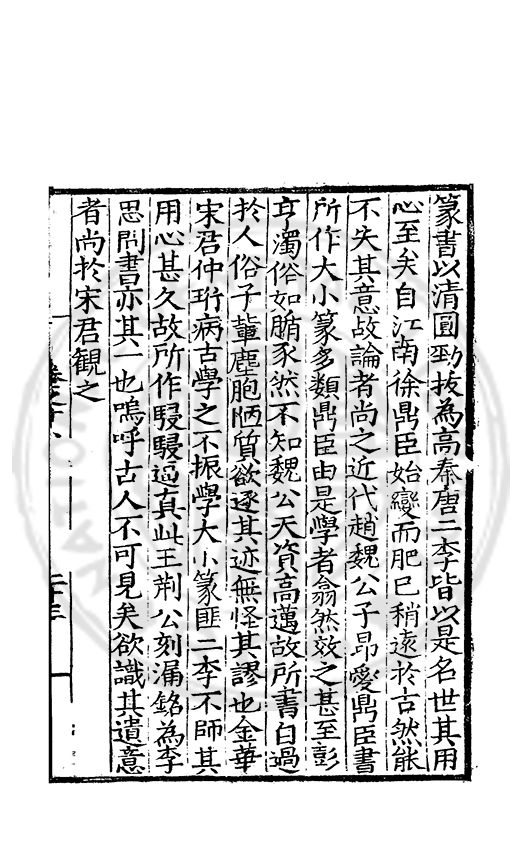 篆書以清圓勁拔為高秦唐二李皆以是名世其用
心至矣自江南徐鼎臣始變而肥已稍遠於古然能
不失其意故論者尚之近代趙魏公子昂愛鼎臣書
所作大小篆多類鼎臣由是學者翕然效之甚至彭
亨濁俗如腯豕然不知魏公天資高邁故所書自過
於人俗子輩塵胞陋質欲逐其迹無怪其謬也金華
宋君仲珩病古學之不振學大小篆匪二李不師其
用心甚久故所作駸駸逼真此王荆公刻漏銘為李
思問書亦其一也嗚呼古人不可見矣欲識其遺意
者尚於宋君観之
卷之十八
二十三